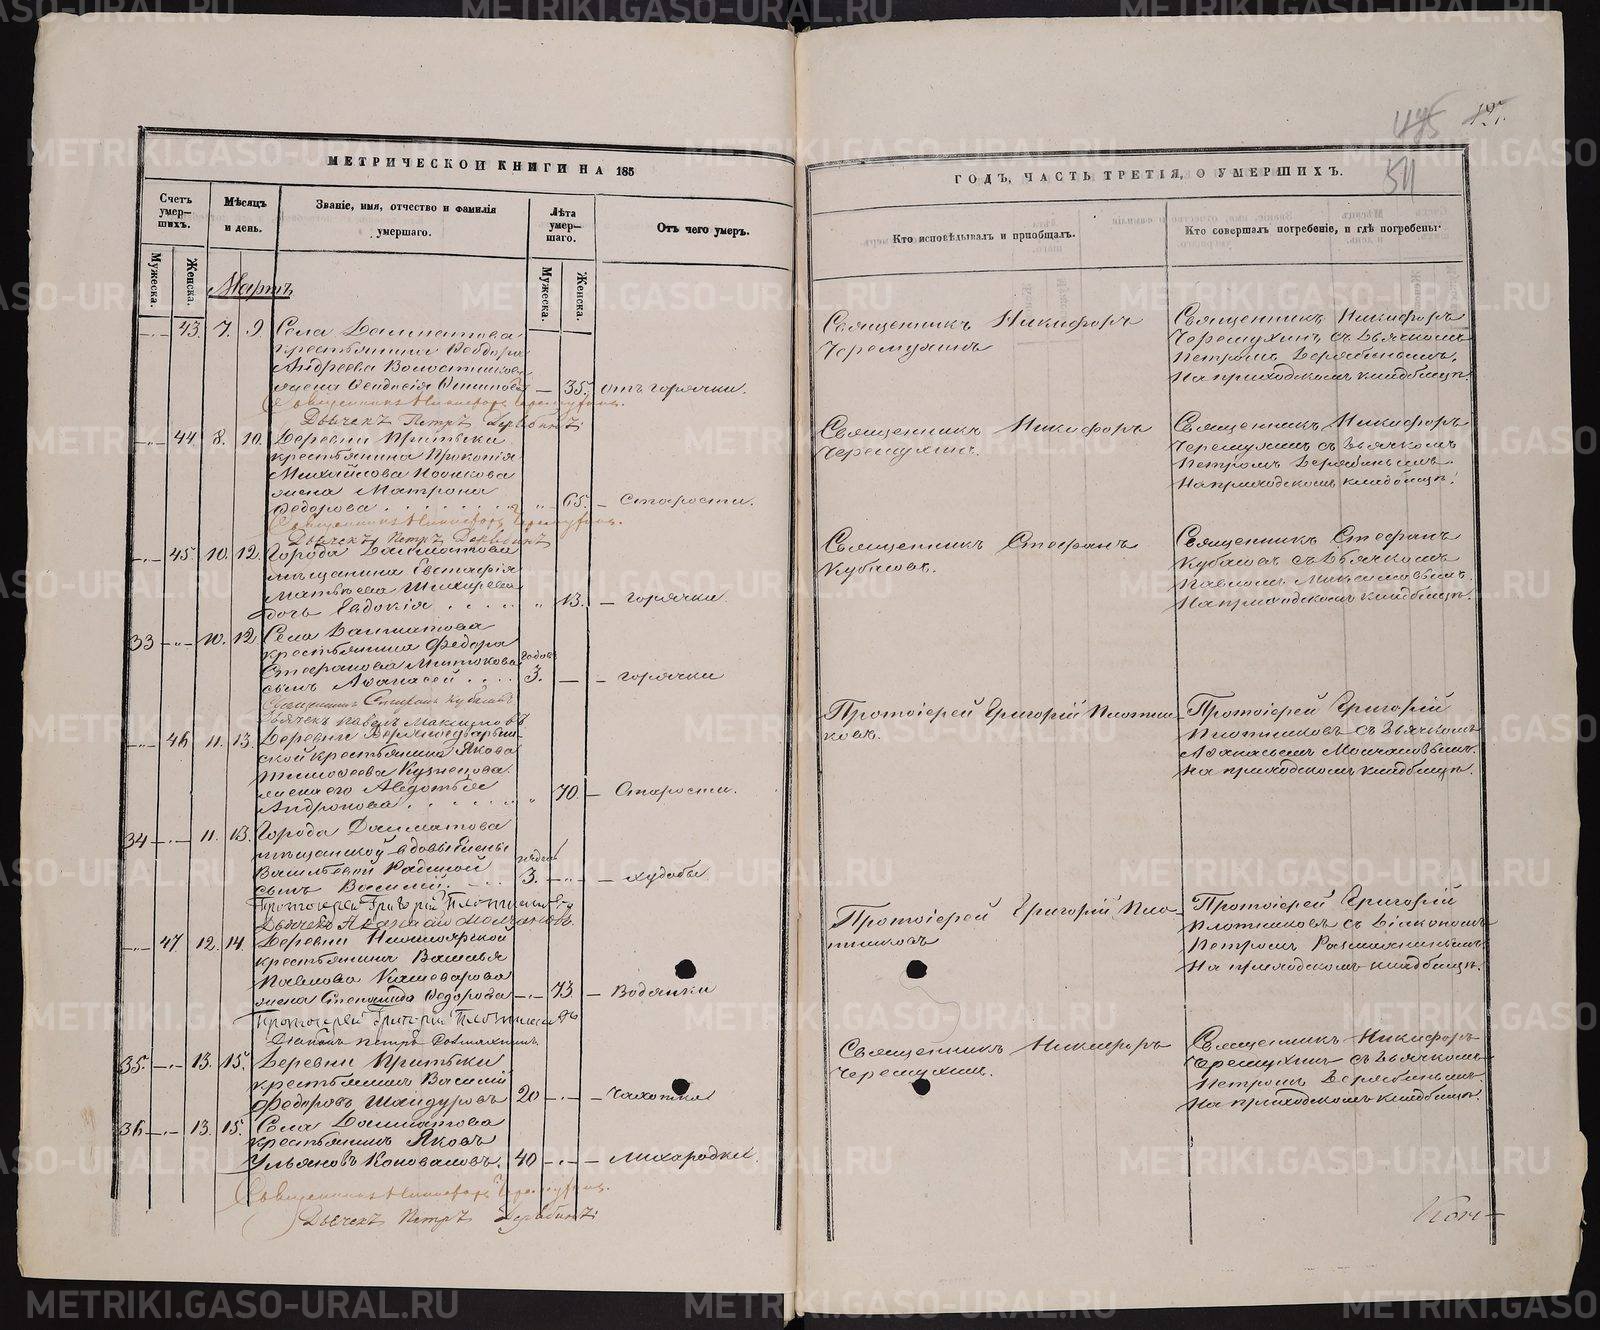 МЕТРИЧЕСКОЙ КНИГИ НА 185
Счетъ умер-шихъ.
Мужеска.
Женска.
Мѣсяцъ и день.
Званіе, имя, отчество и фамилія умершаго.
Лѣта умер-шаго.
Мужеска.
Женска.
Отъ чего умеръ.
Мартъ
43. 7. 9. Села Далматова
крестьянина Ѳеодора
Андреева
жена Ѳеодосія 35. отъ горячки.
Священникъ Никифоръ Черемухинъ.
Дьячекъ Петръ Дерябинъ
44. 8. 10. Деревни Притыки
крестьянина Прокопія
Михайлова
жена Матрона
Ѳедорова 65. Старости.
Священникъ Никифоръ Черемухинъ.
Дьячекъ Петръ Дерябинъ
45. 10. 12. Города Далматова
мѣщанина Евстафія
Матвѣева
дочь Евдокія 13. горячки
33 10. 12. Села Далматова
крестьянина Федора
Стефанова
сынъ Аѳанасей годов 3. горячки
Священникъ Стефанъ Кубасовъ
Дьячекъ Павелъ Максимовъ
46 11. 13. Деревни
ской крестьянина Якова
Тимоѳеева Кузнецова
жена его Авдотья
Андронова 70 Старости.
34 11. 13. Города Далматова
мѣщанской вдовы Елены
Васильевой
сынъ Василій 3. худобы
Протоіерей Григорій Плотниковъ
Дьячекъ
47 12. 14. Деревни
крестьянина Василья
Павлова Кашеварова
жена Степанида Ѳедорова 73 Водянки
Протоіерей Григорій Плотниковъ
Діаконъ Петръ
35. 13. 15. Деревни Притыки
крестьянинъ Василій
Федоровъ Шандуровъ 20 Чахотки
36 13. 15. Села Далматова
крестьянинъ Яковъ
Ульяновъ Коноваловъ. 40 лихорадки.
Священникъ Никифоръ Черемухинъ.
Дьячекъ Петръ Дерябинъ
511
ГОДЪ, ЧАСТЬ ТРЕТІЯ, О УМЕРШИХЪ.
Кто исповѣдывалъ и пріобщалъ.
Кто совершалъ погребеніе, и гдѣ погребены.
Священникъ Никифоръ
Черемухинъ
Священникъ Никифоръ
Черемухинъ съ Дьячкомъ
Петромъ Дерябинымъ.
На приходскомъ кладбищѣ.
Священникъ Никифоръ
Черемухинъ.
Священникъ Никифоръ
Черемухинъ съ Дьячкомъ
Петромъ Дерябинымъ.
На приходскомъ кладбищѣ.
Священникъ Стефанъ
Кубасовъ.
Священникъ Стефанъ
Кубасовъ съ Дьячкомъ
Павломъ Максимовымъ.
На приходскомъ кладбищѣ.
Протоіерей Григорій Плотни-
ковъ.
Протоіерей Григорій
Плотниковъ съ Дьячкомъ
Аѳанасьемъ Молчановымъ.
На приходскомъ кладбищѣ.
Протоіерей Григорій Пло-
тниковъ
Протоіерей Григорій
Плотниковъ съ Діакономъ
Петромъ
На приходскомъ кладбищѣ.
Священникъ Никифоръ
Черемухинъ.
Священникъ Никифоръ
Черемухинъ съ Дьячкомъ
Петромъ Дерябинымъ
На приходскомъ кладбищѣ.
METRIKI.GASO-URAL.RU